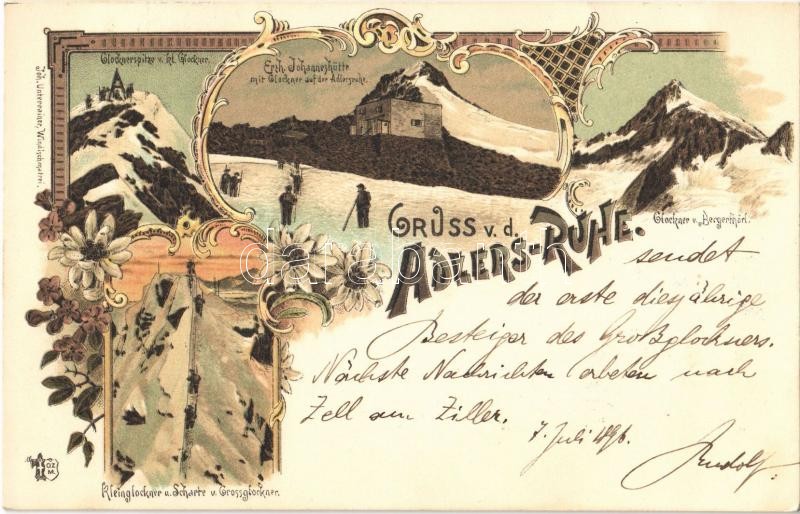 Glocknerspitze v. kl. Glockner.
Erzh. Johannshütte
mit Glockner auf der Adlersruhe.
Joh. Unterrainer, Windischmatrei.
Glockner v. Bergerthörl.
GRUSS v. d.
ADLERS-RUHE.
sendet
der erste diesjährige
Besteiger des Großglockners.
Nächste Nachrichten erbeten nach
Zell am Ziller.
7. Juli 1896.
Rudolf
OZM
Kleinglockner u. Scharte v. Grossglockner.